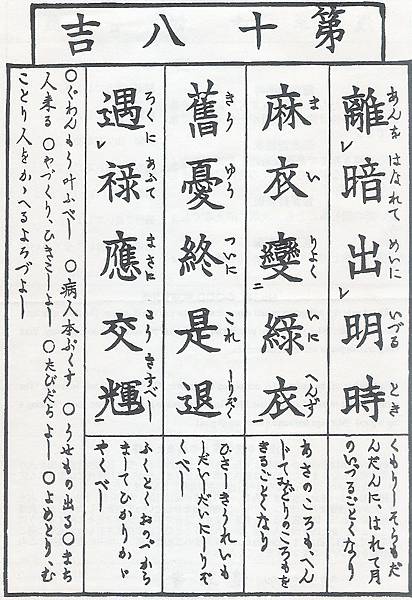 第十八吉
離暗出明時
あんを はなれて めいに いづる とき
麻衣變綠衣
まい りよく いに へんず
舊憂終是退
きう ゆう ついに これ しりぞく
遇禄應交輝
ろくに あふて まさに こう きすべし
くもりしそらもだ
んだんに、はれて月
のいづるごとくなり
あさのころも、へん
じてみどりのころもを
きるごとくなり
ひさしきうれいも
しだいしだいにしりぞ
くべし
ふくとくおのづから
ましてひかりかゞ
やくべし
○ぐわんもう叶ふべし ○病人本ぷくす ○うせもの出る○まち
人来る ○やづくり、ひきこしよし ○たびだちよし ○よめとり、む
ことり人をかゝへるよろづよし